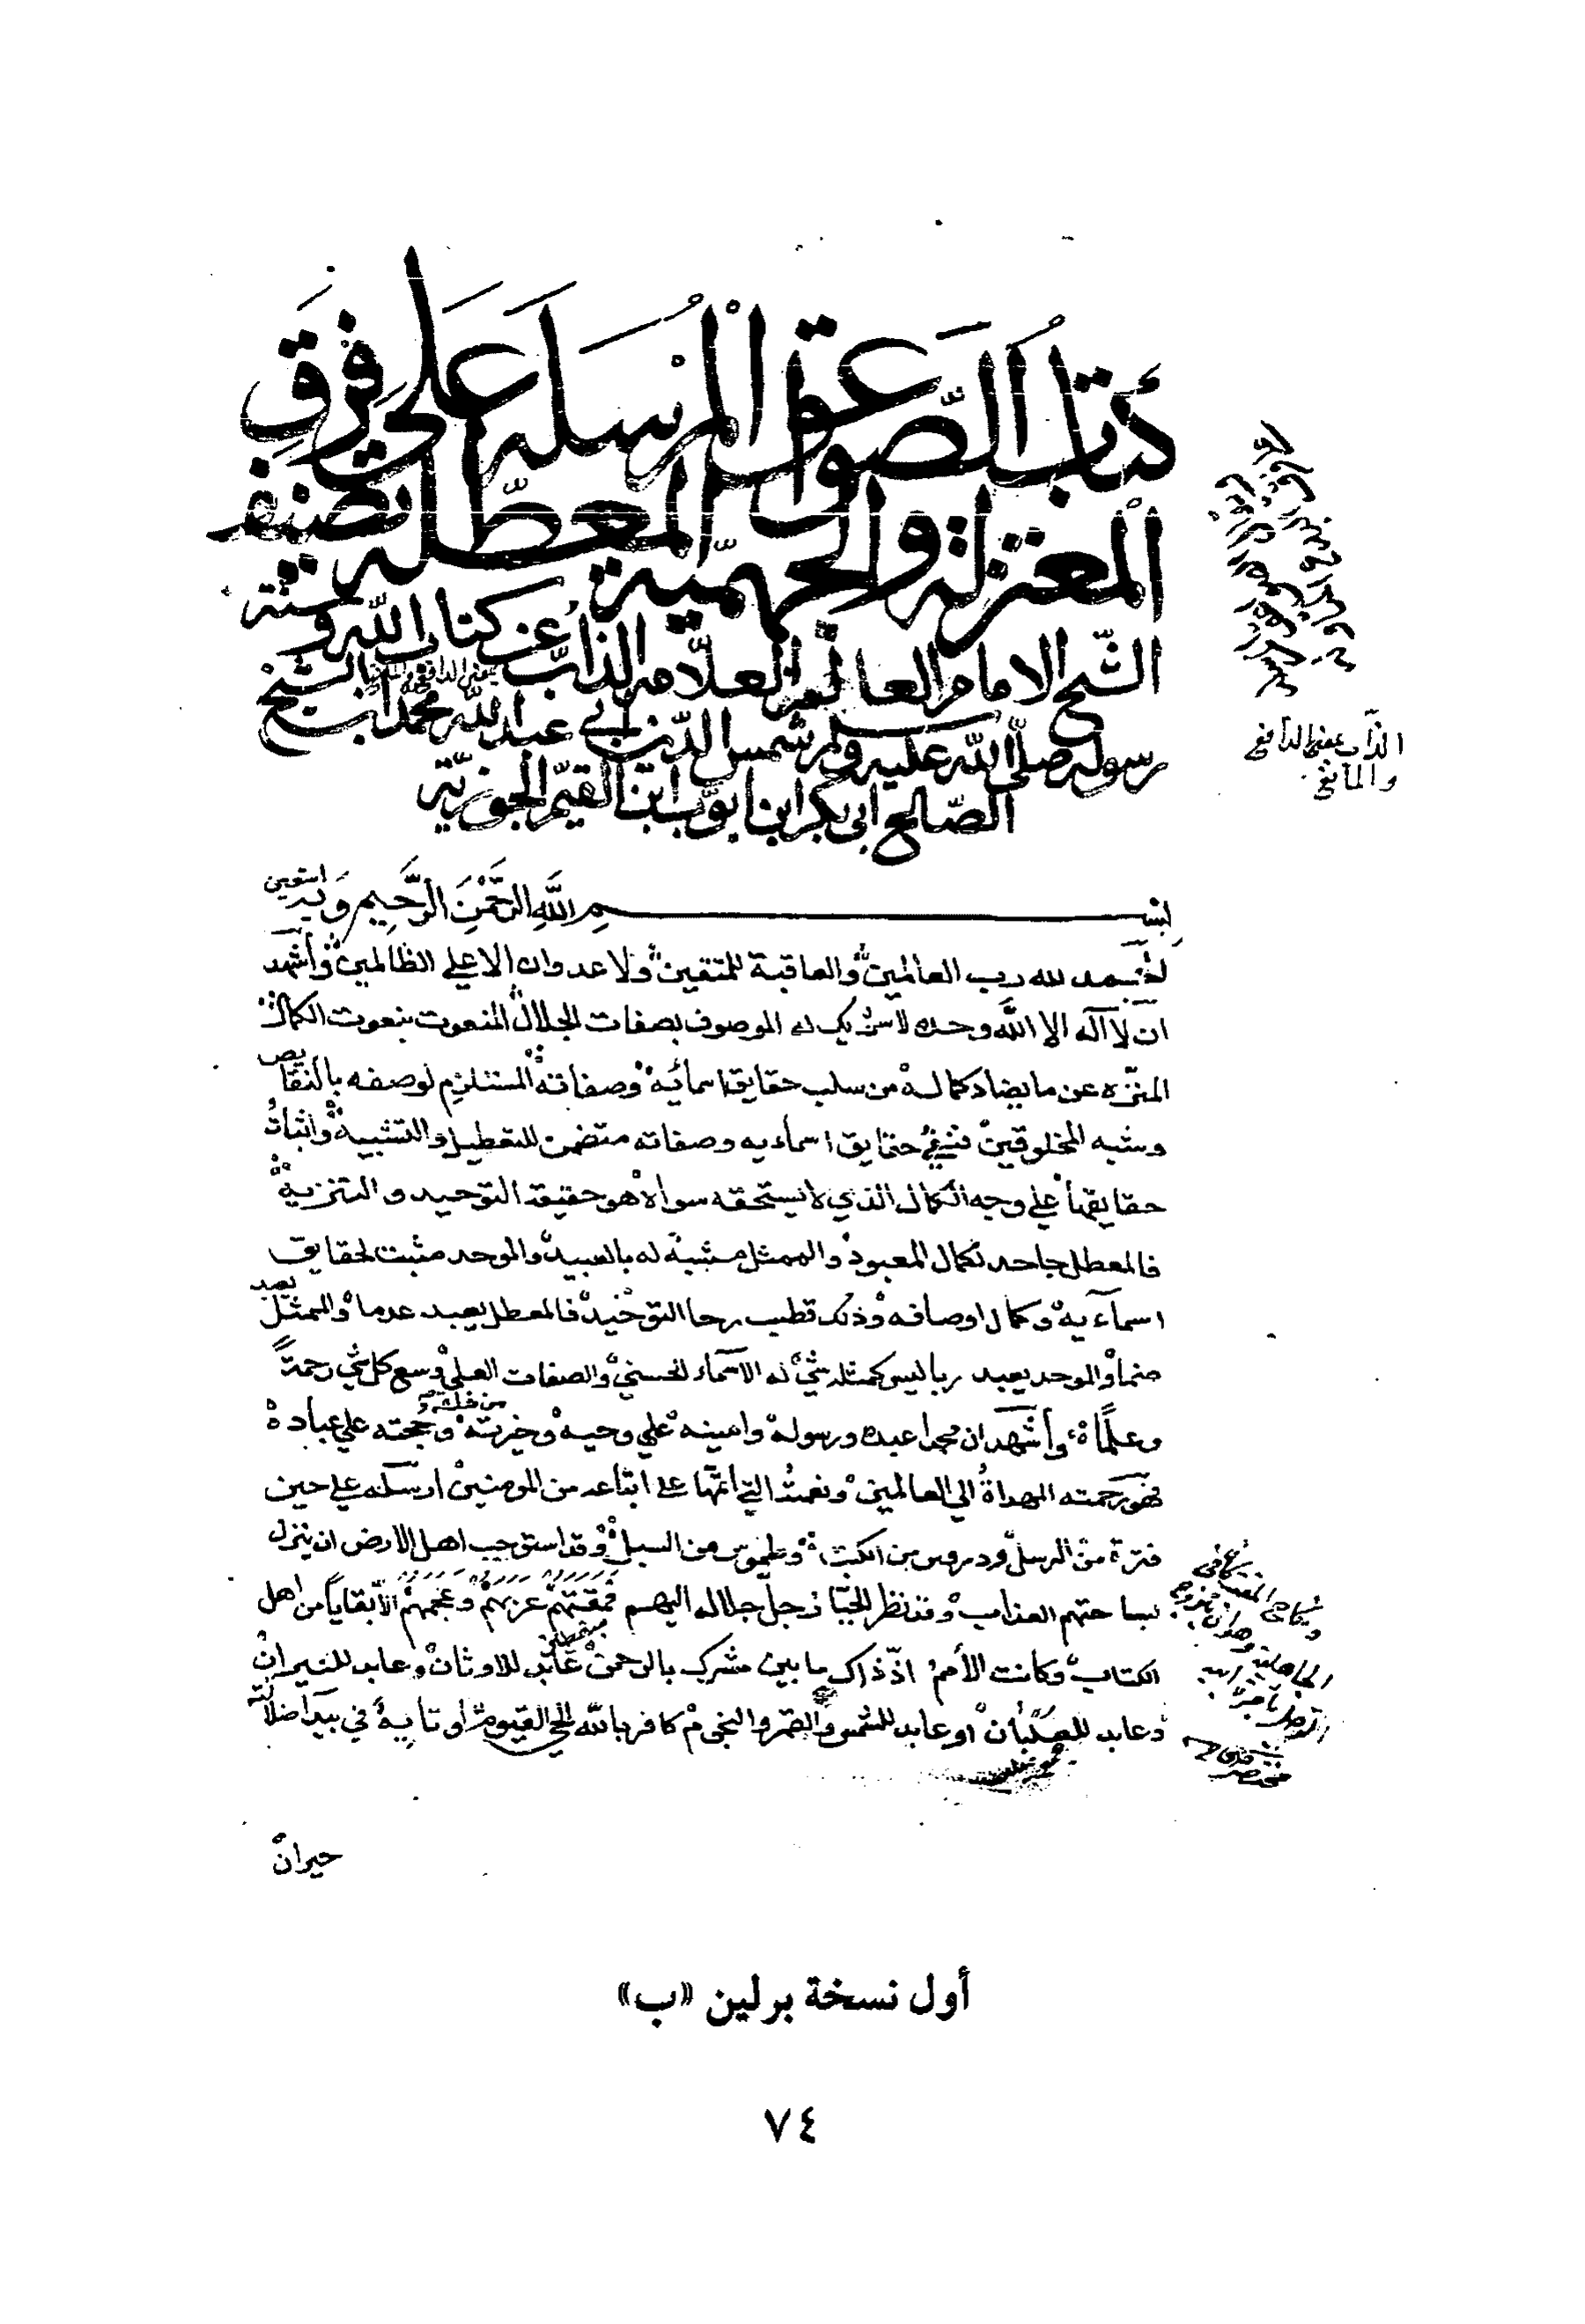 كتاب الصواعق المرسله على فرق
المعتزلة والجهمية المعطله تصنيف
الشيخ الامام العالم العلامه الذاب عن كتاب الله وسنة
رسوله صلى الله عليه وسلم شمس الدين ابي عبد الله محمد ابن الشيخ
الصالح ابي بكر ابن ايوب ابن القيم الجوزية
الذاب بمعنى الدافع
والمانع
بسم الله الرحمن الرحيم وبه استعين
الحمد لله رب العالمين والعاقبة للمتقين ولا عدوان الا علي الظالمين وأشهد
ان لا اله الا الله وحده لا شريك له الموصوف بصفات الجلال المنعوت بنعوت الكمال
المنزه عن ما يضاد كماله من سلب حقايق اسمائه وصفاته المستلزم لوصفه بالنقايص
وشبه المخلوقين فنفي حقايق اسمايه وصفاته متضمن للتعطيل والتشبيه واثبات
حقايقها علي وجه الكمال الذي لا يستحقه سواه هو حقيقة التوحيد والتنزيه
فالمعطل جاحد لكمال المعبود والممثل مشبه له بالعبيد والموحد مثبت لحقايق
اسمآيه وكمال اوصافه وذلك قطب رحا التوحيد فالمعطل يعبد عدما والممثل يعبد
صنما والموحد يعبد ربا ليس كمثله شيء له الاسماء الحسني والصفات العلي وسع كل شي رحمة
وعلما وأشهد ان محمدا عبده ورسوله وامينه علي وحيه وخيرته من خلقه وحجته علي عباده
فهو رحمته المهداة الي العالمين ونعمته التي اتمها على اتباعه من المومنين ارسله علي حين
فترة من الرسل ودروس من الكتب وطموس من السبل وقد استوجب اهل الارض ان ينزل
بساحتهم العذاب وقد نظر الجبار جل جلاله اليهم فمقتهم عربهم وعجمهم الا بقايا من اهل
الكتاب وكانت الأمم اذ ذاك ما بين مشرك بالرحمن عابد للاوثان وعابد للنيران
وعابد للصلبان او عابد للشمس والقمر والنجوم كافر بالله الحي القيوم او تايه في بيدا ضلالته
حيران
أول نسخة برلين «ب»
٧٤